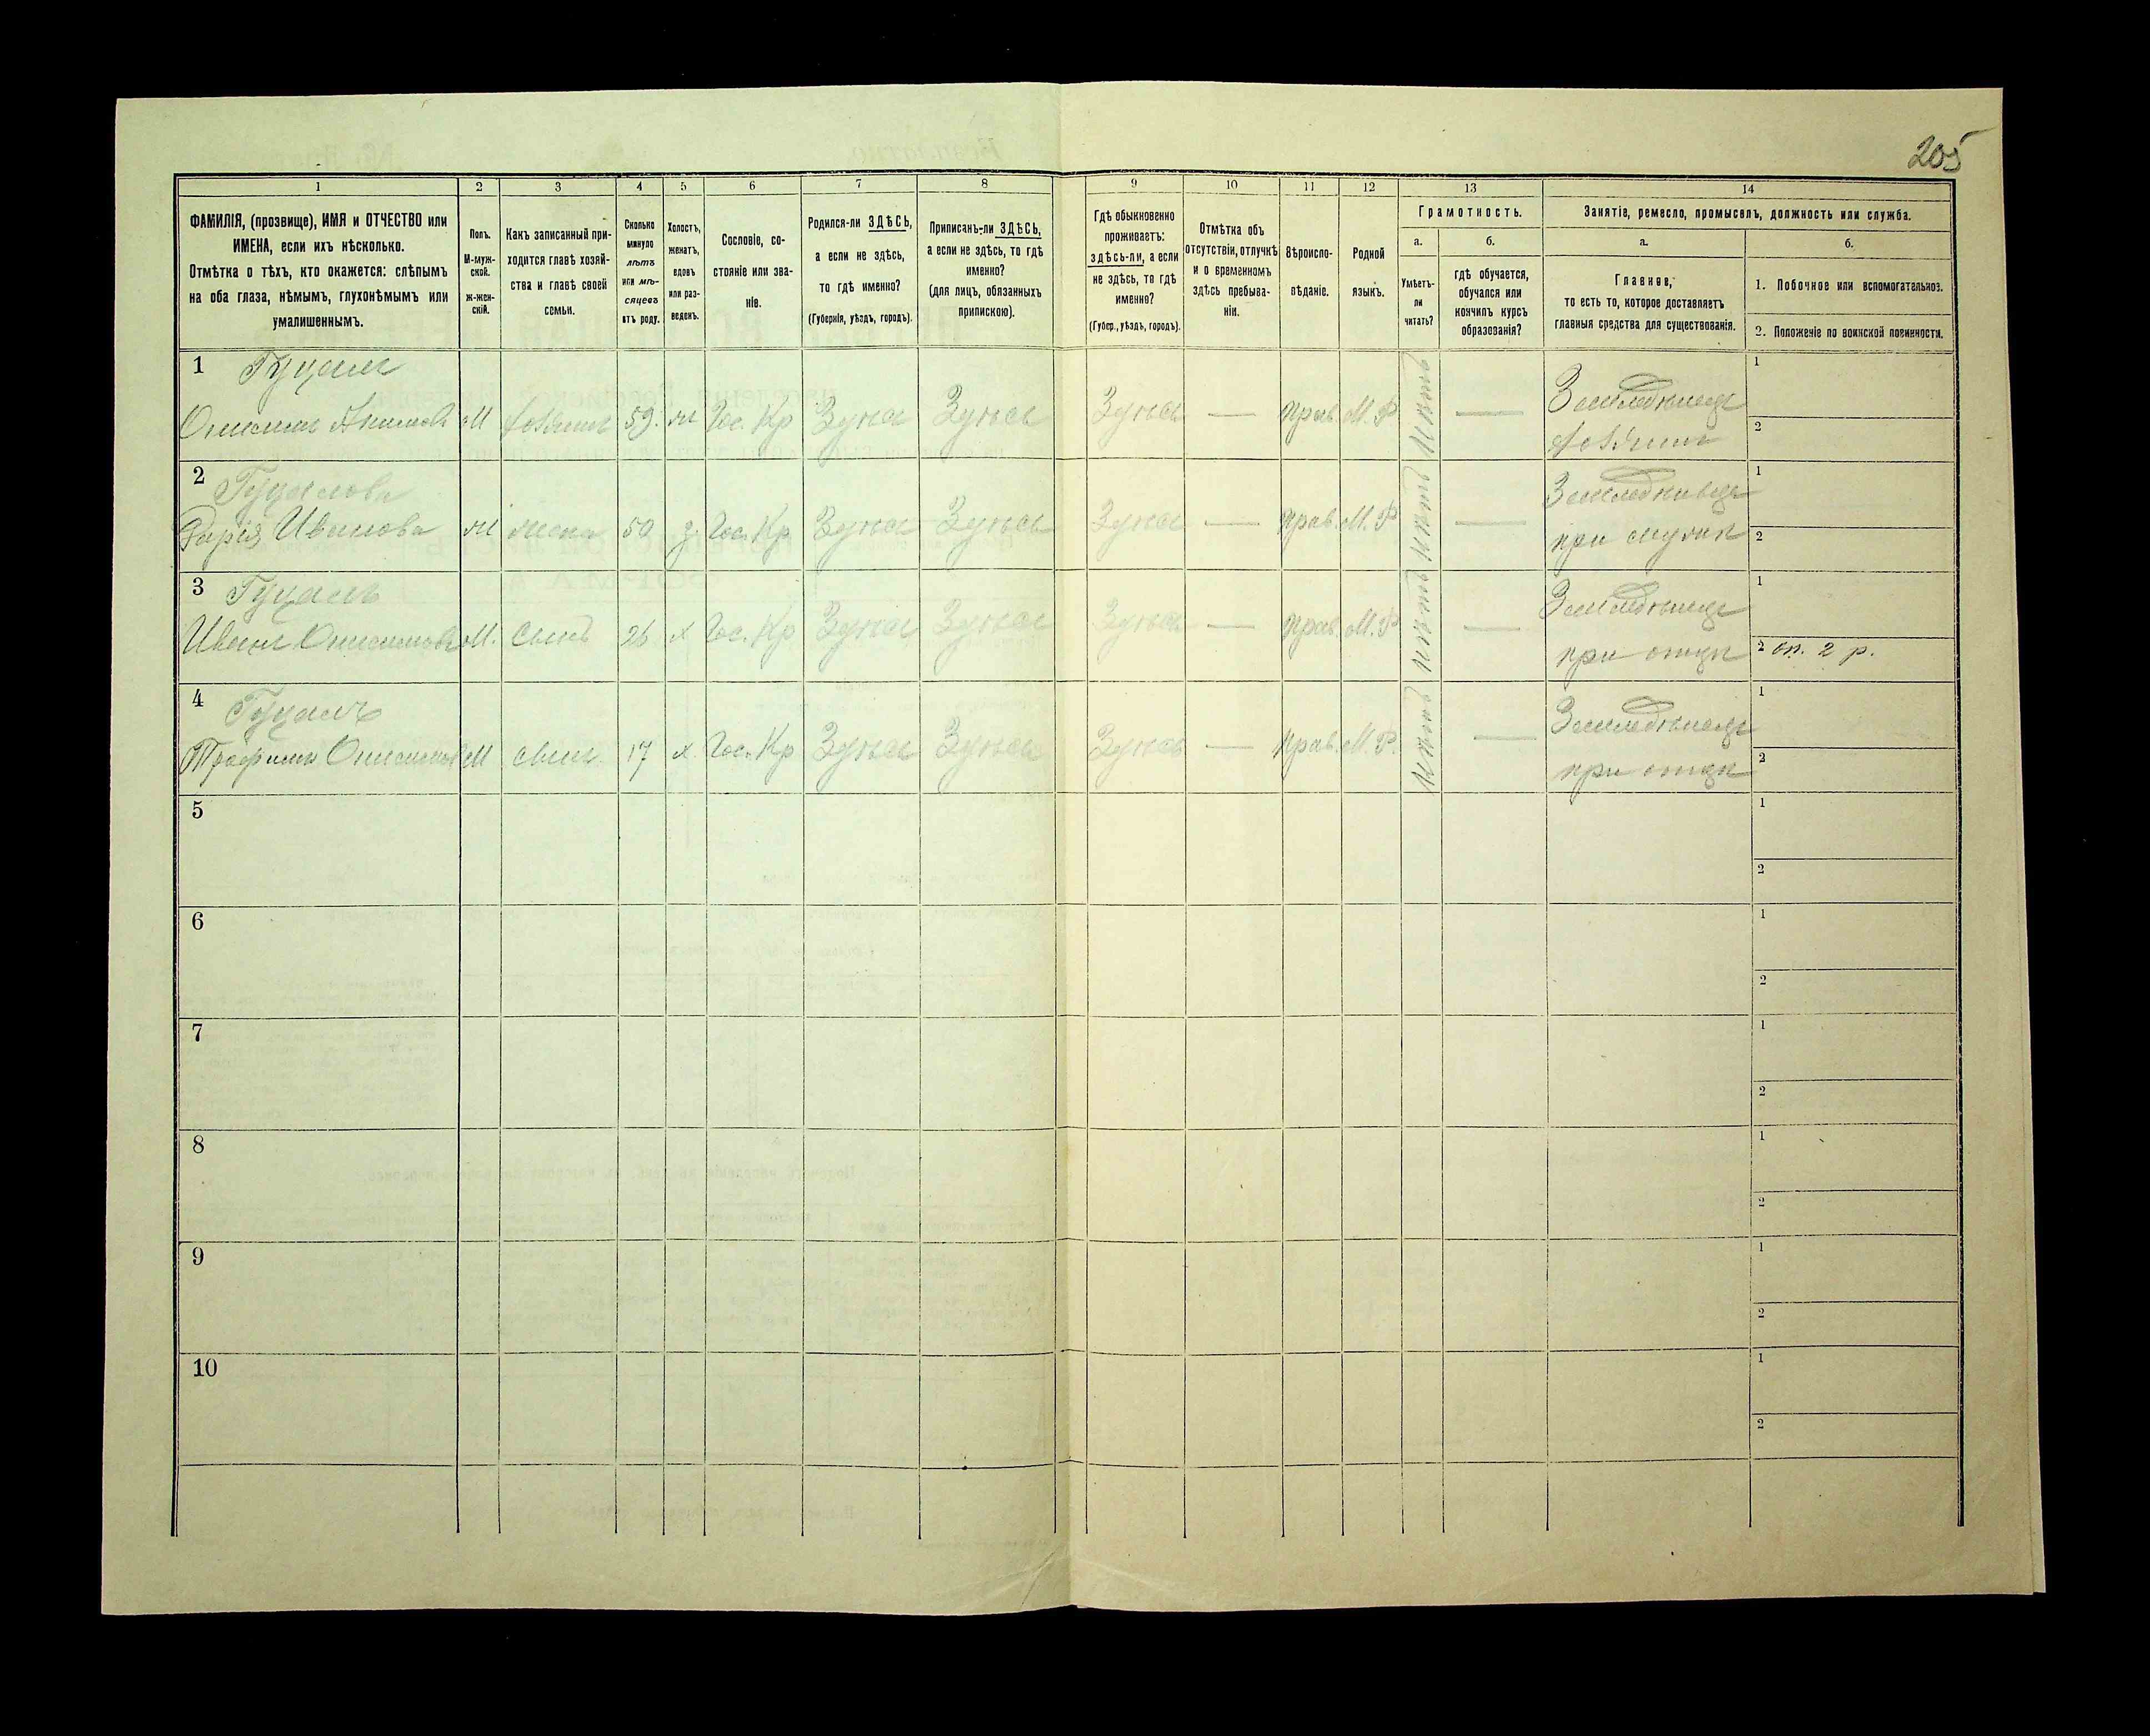 205
1 2 3 4 5 6 7 8 9 10 11 12 13 14
ФАМИЛІЯ, (прозвище), ИМЯ и ОТЧЕСТВО или
ИМЕНА, если ихъ нѣсколько.
Отмѣтка о тѣхъ, кто окажется: слѣпымъ
на оба глаза, нѣмымъ, глухонѣмымъ или
умалишеннымъ.
Полъ.
М-муж-
ской.
Ж-жен-
скій.
Какъ записанный при-
ходится главѣ хозяй-
ства и главѣ своей
семьи.
Сколько
минуло
лѣтъ
или мѣ-
сяцевъ
отъ роду.
Холостъ,
женатъ,
вдовъ
или раз-
веденъ.
Сословіе, со-
стояніе или зва-
ніе.
Родился-ли ЗДѢСЬ,
а если не здѣсь,
то гдѣ именно?
(Губернія, уѣздъ, городъ).
Приписанъ-ли ЗДѢСЬ,
а если не здѣсь, то гдѣ
именно?
(для лицъ, обязанныхъ
припискою).
Гдѣ обыкновенно
проживаетъ:
здѣсь-ли, а если
не здѣсь, то гдѣ
именно?
(Губер., уѣздъ, городъ).
Отмѣтка объ
отсутствіи, отлучкѣ
и о временномъ
здѣсь пребыва-
ніи.
Вѣроиспо-
вѣданіе.
Родной
языкъ.
Грамотность.
а.
Умѣетъ-
ли
читать?
б.
гдѣ обучается,
обучался или
кончилъ курсъ
образованія?
Занятіе, ремесло, промыселъ, должность или служба.
а.
Главное,
то есть то, которое доставляетъ
главныя средства для существованія.
б.
1. Побочное или вспомогательное.
2. Положеніе по воинской повинности.
1 Гуцалъ 1
Онисимъ Акимовъ М хозяинъ 59 Гос. Кр Здѣсь Здѣсь Здѣсь — Прав. М. Р нѣтъ — Земледѣлецъ
хозяинъ 2
2 Гуцалова 1
Дарія Иванова жена 50 Гос. Кр Здѣсь Здѣсь Здѣсь — Прав. М. Р нѣтъ —
при мужѣ 2
3 Гуцалъ 1
Иванъ Онисимовъ М. сынъ 26 х Гос. Кр Здѣсь Здѣсь Здѣсь — Прав. М. Р нѣтъ — Земледѣлецъ
при отцѣ 2 оп. 2 р.
4 Гуцалъ 1
Трофимъ Онисимовъ М сынъ 17 х Гос. Кр Здѣсь Здѣсь Здѣсь — Прав. М. Р. нѣтъ — Земледѣлецъ
при отцѣ 2
5 1
2
6 1
2
7 1
2
8 1
2
9 1
2
10 1
2